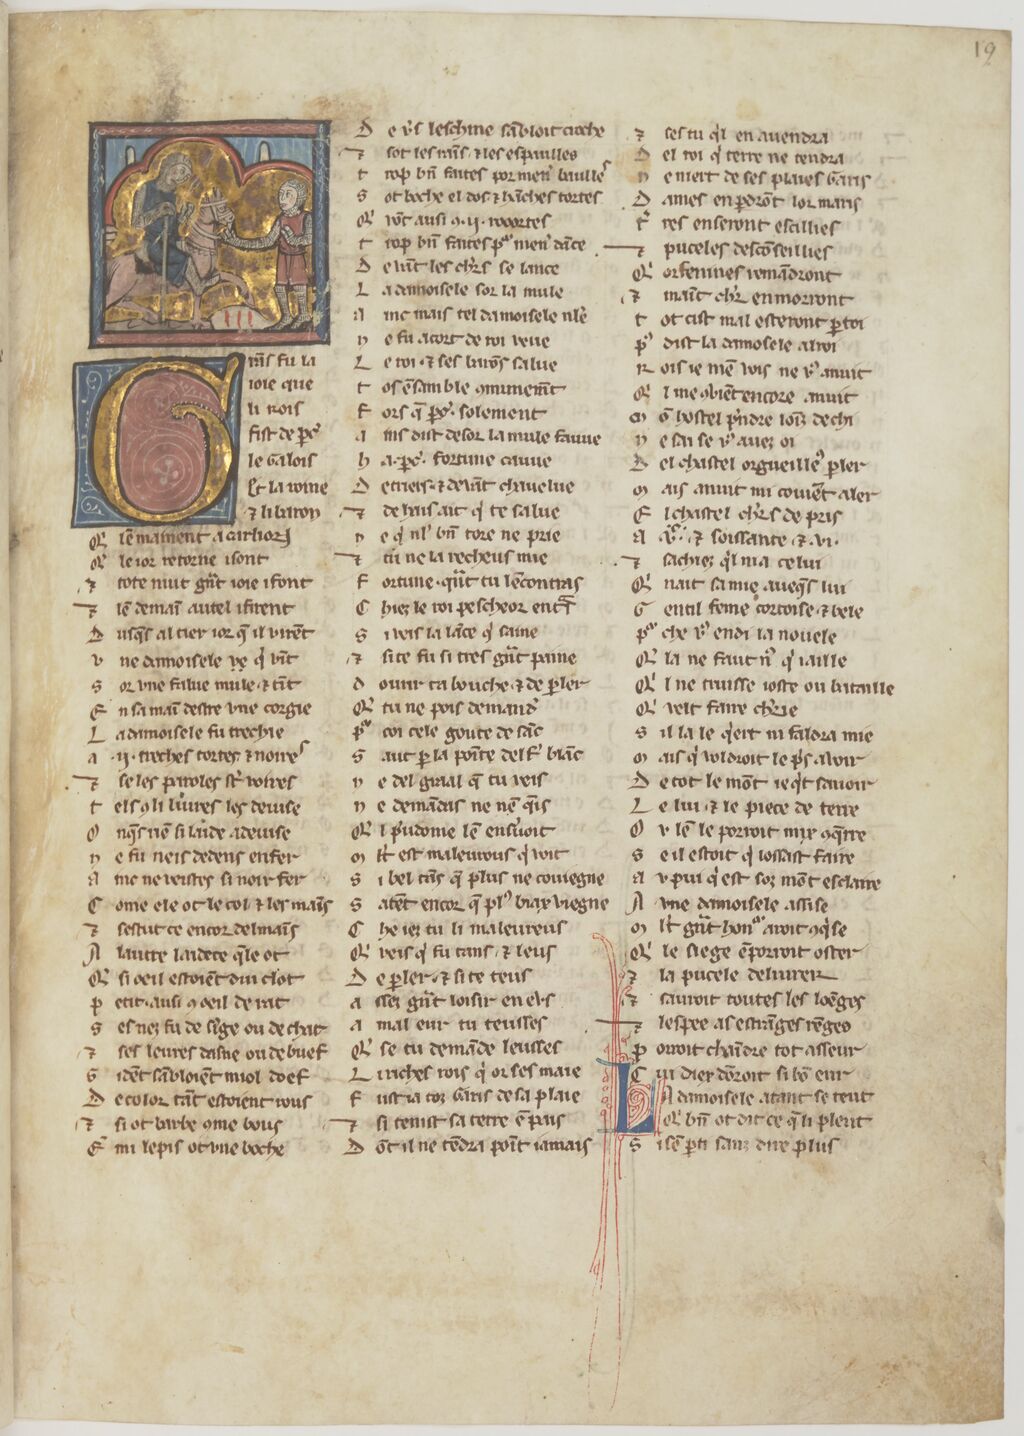 19
Grãs fu la
ioie que
li rois
fist de ꝑc̃
le Galois
Et la roine
⁊ li baron
Q̃ lẽ mainent a carlion
Q̃ le ior retorne i sont
⁊ tote nuit gñt ioie i font
⁊ lẽdemaĩ autel i firent
D usq̃s al tier ior q̃ il virẽt
v ne damoisele q̃ vĩt
S or vne falue mule ⁊ tĩt
E n sa maĩ destre vne corgie
L a damoisele fu trechie
a .ii. treches tortes ⁊ noires
⁊ se les paroles sõt voires
t els li liures les deuise
O nq̃s riẽ si laide a deuise
n e fu neis dedens enfer
A inc ne veistes si noir fer
C ome ele ot le col ⁊ les maĩs
⁊ sestut ce encor del mains
A lautre laidece q̃le ot
Q̃ si oeil estoiẽt dui clot
p etit ausi 9 oeil de rat
S es nez fu de sĩge ou de chat
⁊ ses leures dasne ou de buef
S i dẽt sãbloiẽt miol doef
D e color tãt estoient rous
⁊ si ot barbe 9me bous
Eñ mi le pis ot vne boche
D e ṽs leschine sãbloit croche
⁊ sot les raĩs ⁊ les espaulles
t rop bñ faites por menr̃ baulles
S ot boche el dos ⁊ hãches tortes
Q̃ võt ausi 9 .ii. roortes
t rop bñ faites pr̃ menr̃ dãce
D euãt les chr̃s se lance
L a damoisele sor la mule
A inc mais tel damoisele nle
n e fu a cort de roi veue
L e roi ⁊ ses barõs salue
t os ẽsamble 9munemẽt
F ors q̃ ꝑc̃. solement
a ins dist desor la mule fauue
h a .ꝑc̃. fortune cauue
D etriers ⁊ deuãt cheuelue
⁊ dehais ait q̃ te salue
n e q̃ nl̾ bñ tore ne prie
⁊ tu ne la recheus mie
F ortune q̃nt tu lẽcontras
C hiez le roi pescheor entr̃s
S i veis la lãce q̃ saine
⁊ si te fu si tres gñt paine
d ouurir ta bouche ⁊ de ꝑler
Q̃ tu ne pois demandr̃
p̃ coi cele goute de sãc
S aut ꝑ la poĩte del fr̃ blãc
n e del graal q̃ tu veis
n e demãdas ne nẽ q̃is
Q̃l p̃udome lẽ en ẽuoit
m lt̃ est maleurous q̃ voit
S i bel tãs q̃ plus ne couiegne
S atẽt encor q̃ pl̾ biax viegne
C he iez tu li maleureus
Q̃ veis q̃ fu tans ⁊ leus
D e ꝑler ⁊ si te teus
a ssez gñt loisir en eus
a mal eur tu teusses
Q̃ se tu demãde leusses
L i riches rois q̃ or ses maie
F ust ia toz garis de sa plaie
⁊ si tenist sa terre ẽ pais
D õt il ne tẽdra poĩt iamais
⁊ ses tu q̃l en auendra
D el roi q̃ terre ne tendra
n e niert de ses plaies garis
D ames en ꝑdrõt lor maris
tr̃ res en seront escillies
⁊ puceles desconseillies
Q̃ orfenines remãdront
⁊ maĩt chr̃ en morront
t ot cist mal esteront ꝑ toi
p̃ dist la damosele al roi
R ois ie mẽ vois ne ṽ anuit
Q̃l me 9uiẽt encore anuit
m õ hostel p̃ndre loĩz de chi
n e sai se ṽ auez oi
D el chastel orgueillex ꝑler
m ais anuit mi couiẽt aler
E l chastel chr̃s de pris
A v.c̃ ⁊ soissante ⁊ .vi.
⁊ sachiez q̃l nia celui
Q̃ nait sa mie aueq̃s lui
G entil feme cortoise ⁊ bele
p̃ che ṽ en di la nouele
Q̃ la ne faut nl̾ q̃ i aille
Q̃l ne truisse ioste ou bataille
Q̃ velt faire chr̃ie
S il la le q̃ert ni faldra mie
m ais q̃ voldroit le p̃s auoir
D e tot le mõt ie q̃t sauoir
L e lui ⁊ le piece de terre
O v lẽ le porroit mix 9q̃rre
S e il estoit q̃ losast faire
A v pui q̃ est soz mõt esclaire
A vne damoisele assise
m lt̃ gñt honor̃ aroit 9q̃se
Q̃ le siege ẽ porroit oster
⁊ la pucele deliurer
⁊ sauroit toutes les loẽges
⁊ lespee as estrãges rẽges
P orroit chaĩdre tot asseur
C ui diex dõroit si bõ eur
La damoisele atant se teut
Q̃ bñ ot dit ce q̃ li pleut
S i sẽ ꝑti sanz dire plus